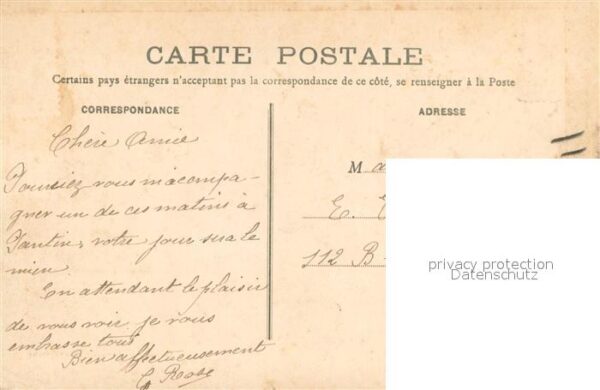 CARTE POSTALE
Certains pays étrangers n'acceptant pas la correspondance de ce côté, se renseigner à la Poste
CORRESPONDANCE
Chère Amie
Pourriez vous m'accompa-
gner un de ces matins à
Pantin, votre jour sera le
mien
En attendant le plaisir
de vous voir je vous
embrasse tous
Bien affectueusement
G Rose
ADRESSE
M
E.
112 B
privacy protection
Datenschutz